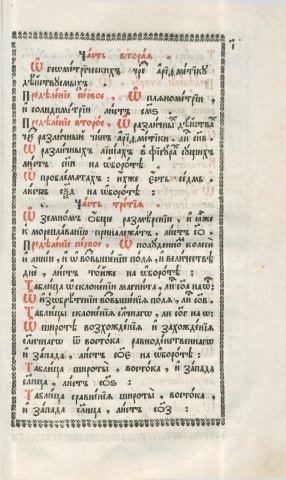 Часть вторая.
Ѿ геѡметрическихъ чрез̾ арїѳметїку
дѣйствуемыхъ.
Предѣленїе первое, Ѿ планометрїи,
и солидиметрїи листъ
Предѣленїе второе, Ѿ различныхъ дѣйства
чрез̾ различный чинъ арїѳметїки: ли:
Ѿ различныхъ лінїахъ в̾ фігурахъ сущихъ
листъ на ѡборотѣ:
Ѿ проблематахъ: ихже есть седмь
листъ на ѡборотѣ:
Часть третїя.
Ѿ земномъ ѻбще размѣренїи, и ꙗже
к̾ мореплаванїю принадлежатъ, листъ
Предѣленїе первое, Ѿ полуденной колеси
и линїи, и ѡ возвышенїи поля, и величествѣ
дне, листъ тойже на ѡборотѣ:
Таблица ѿ склоненїи магнита, ли: на ѡ:
Ѿ изѡбрѣтенїи возвышенїя поля, ли:
Таблицы склоненїя слнчнагѡ, ли: на ѡ:
Ѿ широтѣ восхожденїя и захожденїя
слнчнагѡ ѿ востока равноденственнагѡ
и запада, листъ на ѡборотѣ:
Таблица широты, востока, и запада
слнца, листъ
Таблица сравненїя широты, востока,
и запада слнца, листъ